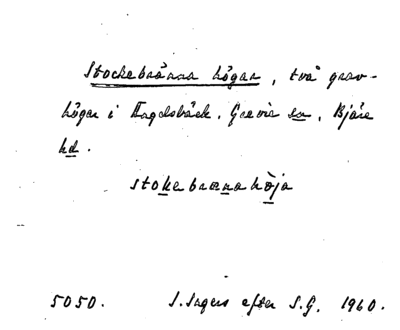 Stockebrånna högar, två grav-
högar i Ängelsbäck. Grevie sn, Bjäre
hd.
stokebrannahöja
5050. S. Ingers efter S.G. 1960.